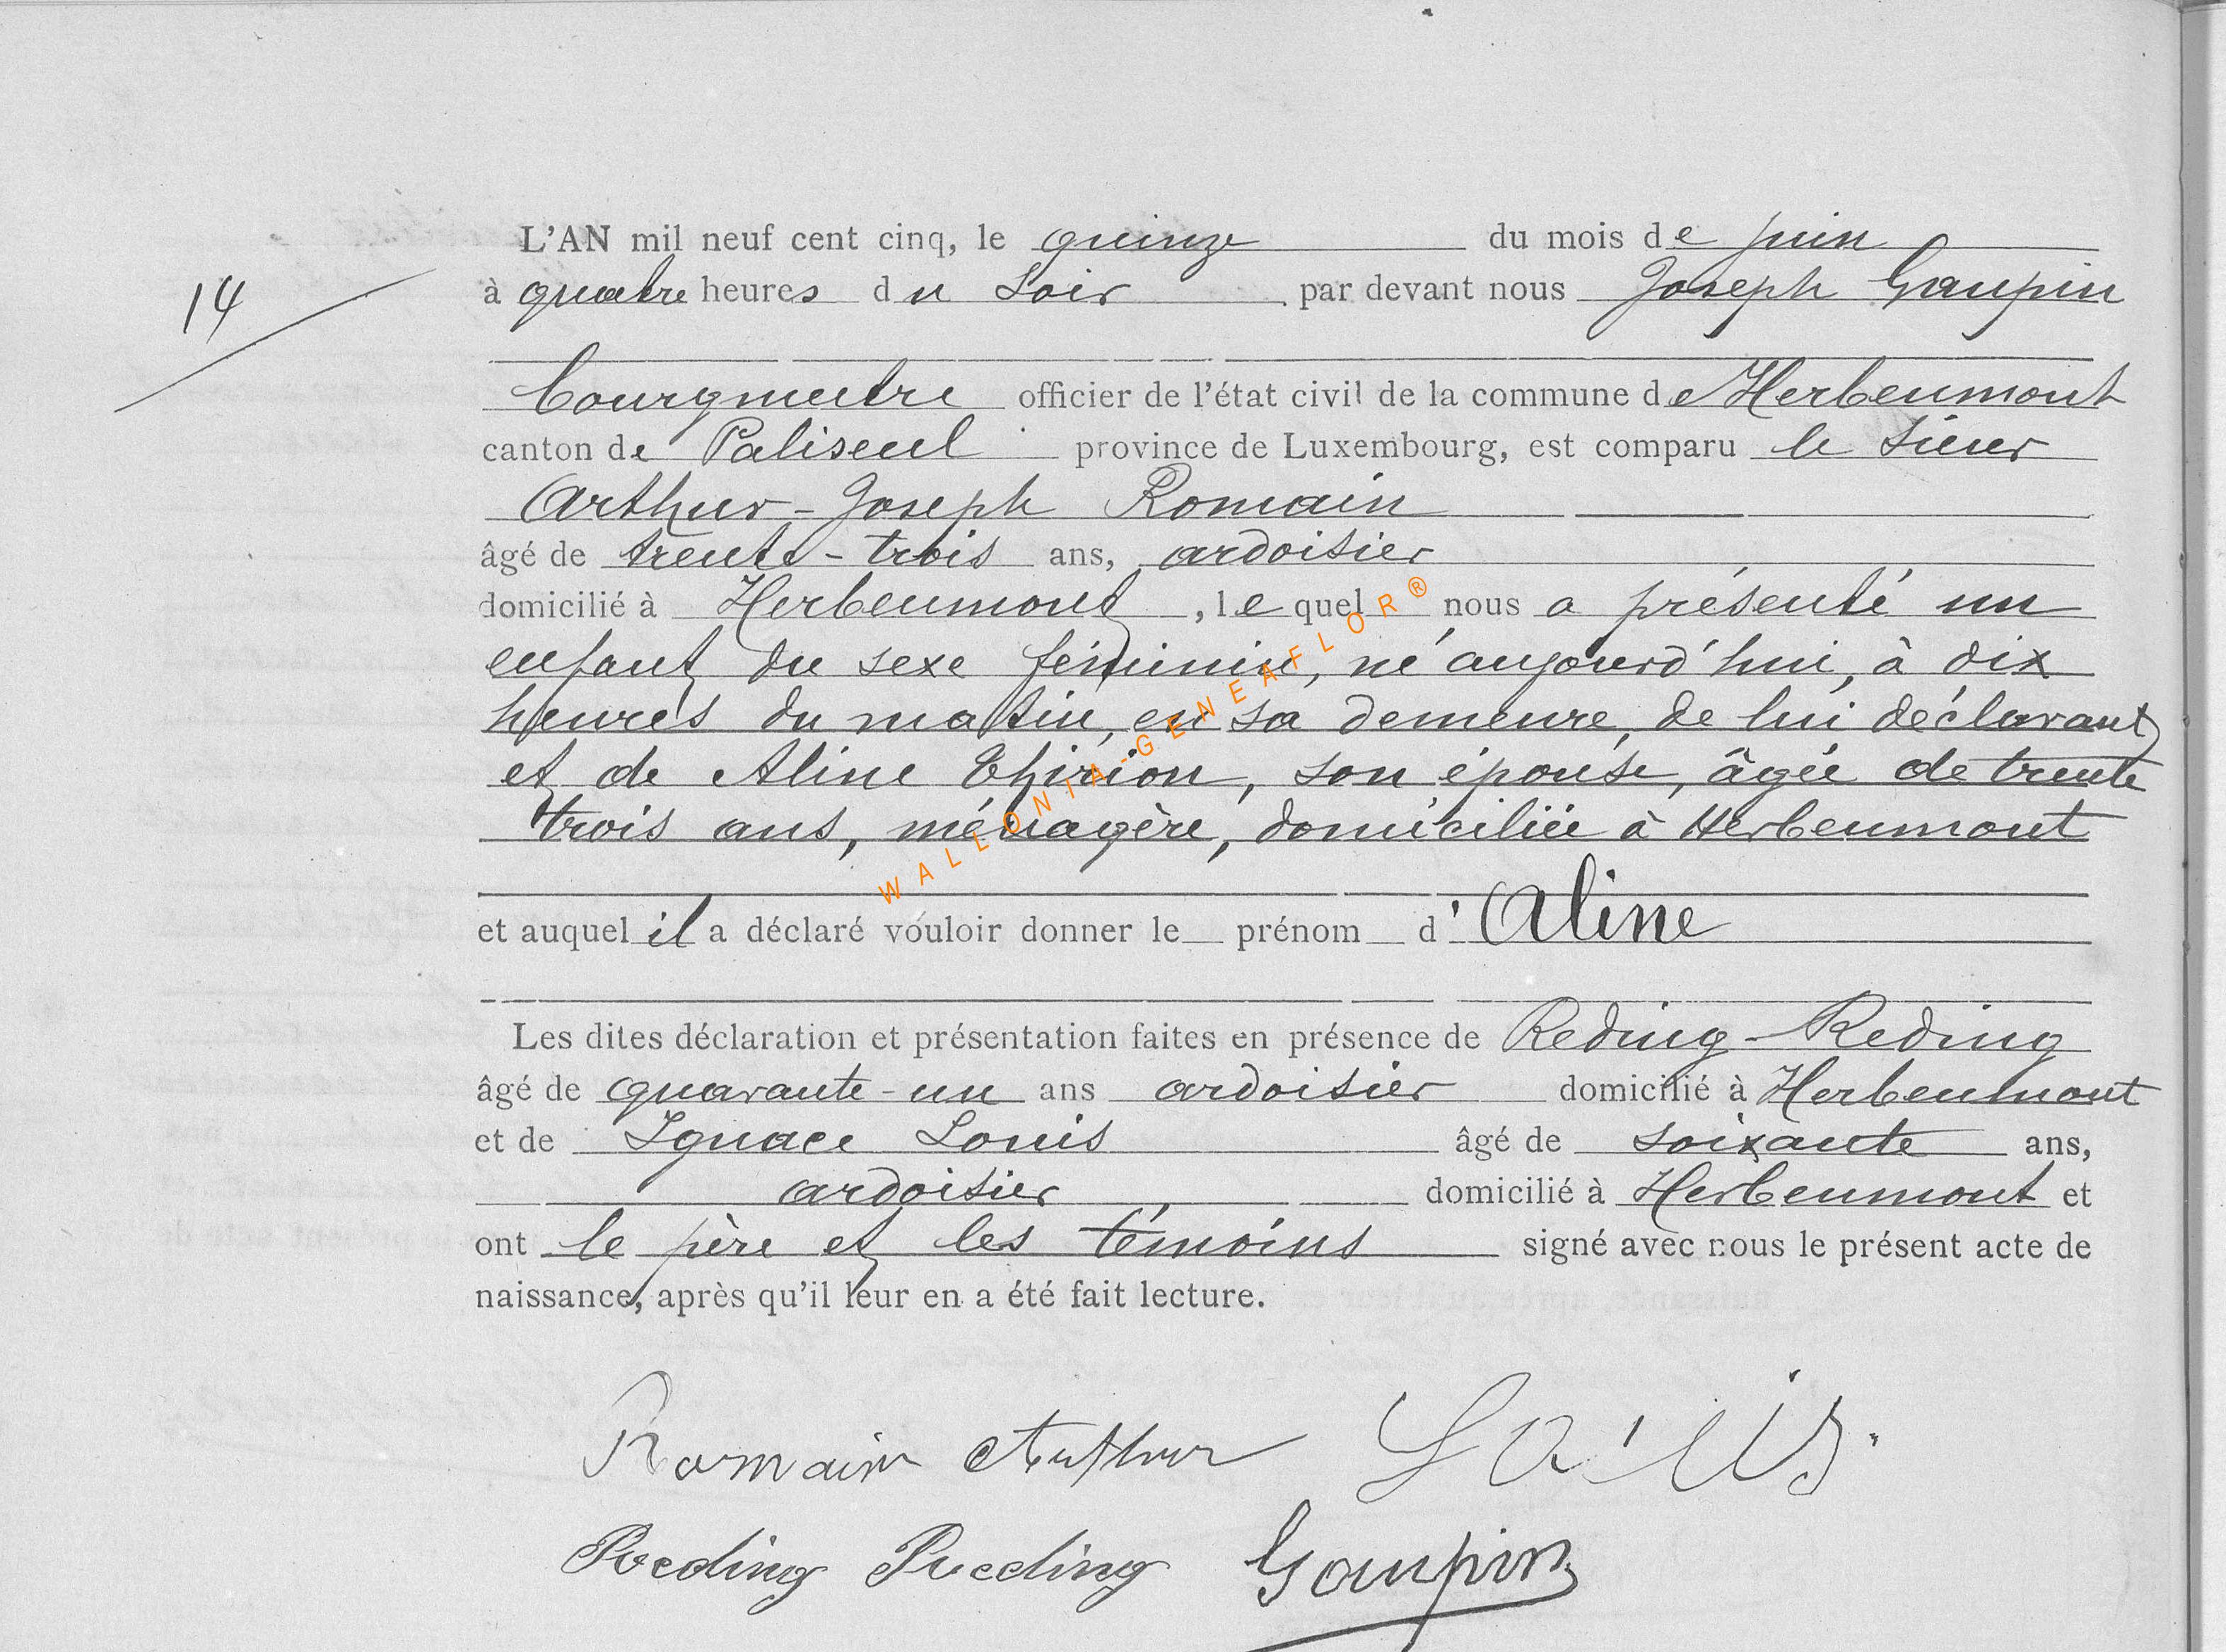 L'AN mil neuf cent cinq, le quinze du mois de juin
14
à quatre heures du Soir par devant nous Joseph Gaupin
bourgmestre officier de l'état civil de la commune de Herbeumont
canton de Paliseul province de Luxembourg, est comparu le sieur
Arthur-Joseph Romain
âgé de trente-trois ans, ardoisier
domicilié à Herbeumont, lequel nous a présenté un
enfant du sexe féminin, né aujourd'hui, à dix
heures du matin, en sa demeure, de lui déclarant
et de Aline Thirion, son épouse, âgée de trente
trois ans, ménagère, domiciliée à Herbeumont
et auquel il a déclaré vouloir donner le prénom d'Aline
Les dites déclaration et présentation faites en présence de Reding-Reding
âgé de quarante-un ans ardoisier domicilié à Herbeumont
et de Ignace Louis âgé de soixante ans,
ardoisier domicilié à Herbeumont et
ont le père et les témoins signé avec nous le présent acte de
naissance, après qu'il leur en a été fait lecture.
Romain Arthur Louis.
Reding Reding Gaupin
WALLONIA-GENEAFLOR®